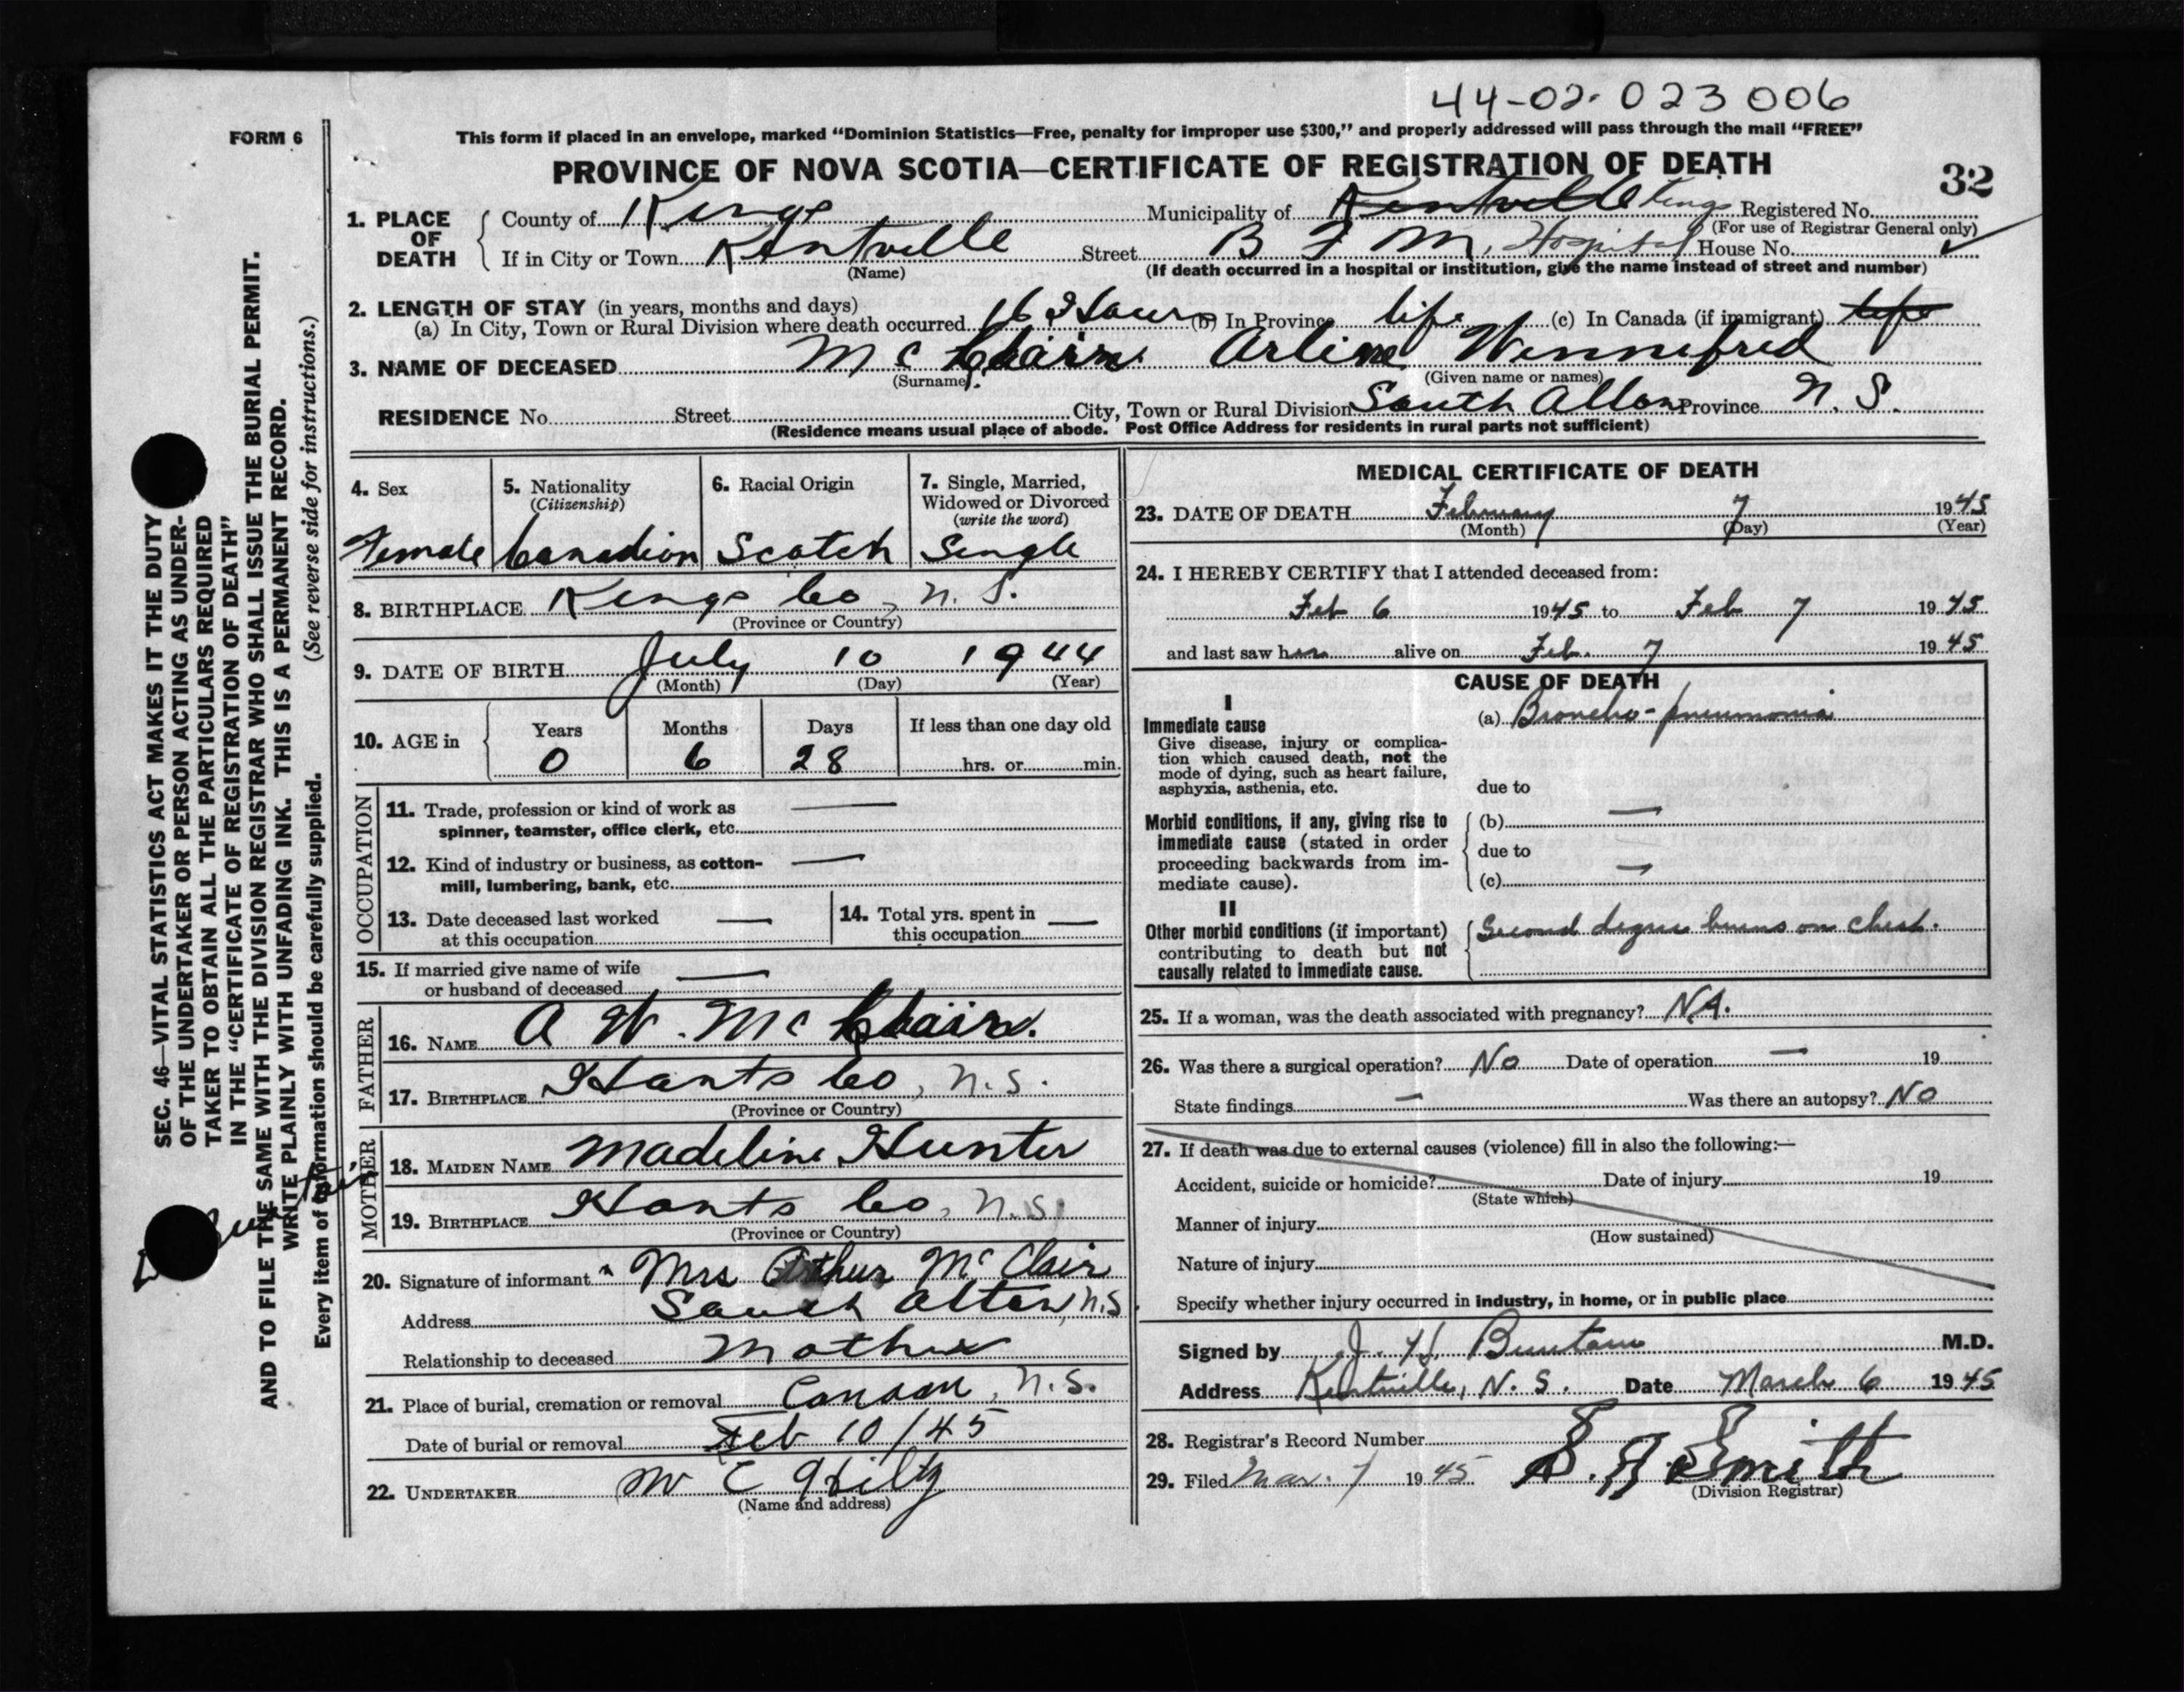 44-02-023006
FORM 6
This form if placed in an envelope, marked “Dominion Statistics—Free, penalty for improper use $300,” and properly addressed will pass through the mail “FREE”
PROVINCE OF NOVA SCOTIA—CERTIFICATE OF REGISTRATION OF DEATH
32
1. PLACE OF DEATH
County of Kings Municipality of Kentville Kings Registered No.
(For use of Registrar General only)
If in City or Town Kentville Street B F M. Hospital House No.
(Name) (If death occurred in a hospital or institution, give the name instead of street and number)
2. LENGTH OF STAY (in years, months and days)
(a) In City, Town or Rural Division where death occurred 16 Hours (b) In Province life (c) In Canada (if immigrant) life
3. NAME OF DECEASED Mc Clair Arline Winnifred
(Surname) (Given name or names)
RESIDENCE No. Street City, Town or Rural Division South Alton Province N. S.
(Residence means usual place of abode. Post Office Address for residents in rural parts not sufficient)
4. Sex
Female
5. Nationality
(Citizenship)
Canadian
6. Racial Origin
Scotch
7. Single, Married,
Widowed or Divorced
(write the word)
Single
8. BIRTHPLACE Kings Co, N. S.
(Province or Country)
9. DATE OF BIRTH July 10 1944
(Month) (Day) (Year)
10. AGE in
Years Months Days If less than one day old
0 6 28 hrs. or min.
OCCUPATION
11. Trade, profession or kind of work as —
spinner, teamster, office clerk, etc.
12. Kind of industry or business, as cotton- —
mill, lumbering, bank, etc.
13. Date deceased last worked —
at this occupation
14. Total yrs. spent in —
this occupation
15. If married give name of wife —
or husband of deceased
FATHER
16. NAME A W. Mc Clair.
17. BIRTHPLACE Hants Co, N.S.
(Province or Country)
MOTHER
18. MAIDEN NAME Madeline Hunter
19. BIRTHPLACE Hants Co, N.S.
(Province or Country)
20. Signature of informant Mrs Arthur McClair
Address South Alton, N.S.
Relationship to deceased Mother
21. Place of burial, cremation or removal Canaan, N.S.
Date of burial or removal Feb 10/45
22. UNDERTAKER W E Hiltz
(Name and address)
MEDICAL CERTIFICATE OF DEATH
23. DATE OF DEATH February 7 1945
(Month) (Day) (Year)
24. I HEREBY CERTIFY that I attended deceased from:
Feb 6 1945 to Feb 7 1945
and last saw her alive on Feb. 7 1945
CAUSE OF DEATH
I
Immediate cause
Give disease, injury or complica-
tion which caused death, not the
mode of dying, such as heart failure,
asphyxia, asthenia, etc.
(a) Broncho-pneumonia
due to
Morbid conditions, if any, giving rise to
immediate cause (stated in order
proceeding backwards from im-
mediate cause).
(b) —
due to
(c) —
II
Other morbid conditions (if important)
contributing to death but not
causally related to immediate cause.
Second degree burns on chest.
25. If a woman, was the death associated with pregnancy? N.A.
26. Was there a surgical operation? No Date of operation — 19
State findings — Was there an autopsy? No
27. If death was due to external causes (violence) fill in also the following:—
Accident, suicide or homicide? Date of injury 19
(State which)
Manner of injury
(How sustained)
Nature of injury
Specify whether injury occurred in industry, in home, or in public place
Signed by J. H. M.D.
Address Kentville, N. S. Date March 6 1945
28. Registrar's Record Number
29. Filed Mar. 7 1945 Smith
(Division Registrar)
SEC. 46—VITAL STATISTICS ACT MAKES IT THE DUTY
OF THE UNDERTAKER OR PERSON ACTING AS UNDER-
TAKER TO OBTAIN ALL THE PARTICULARS REQUIRED
IN THE “CERTIFICATE OF REGISTRATION OF DEATH”
AND TO FILE THE SAME WITH THE DIVISION REGISTRAR WHO SHALL ISSUE THE BURIAL PERMIT.
WRITE PLAINLY WITH UNFADING INK. THIS IS A PERMANENT RECORD.
Every item of information should be carefully supplied. (See reverse side for instructions.)